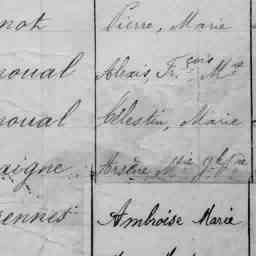 not Pierre, Marie
oual Alexis, Fr.çois Mie
oual Célestin, Marie
aigne Arsène Mie
ennes Ambroise Marie